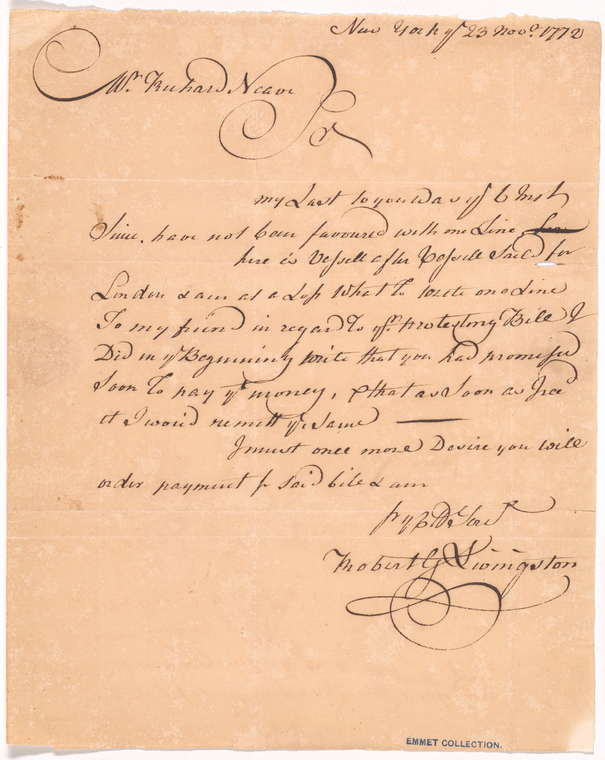 New York ye 23 Novr. 1772
Mr. Richard Neave
Sr
my Last to you was ye 6 Inst
Since have not been favoured with one Line
here is Vessell after Vessell Saild for
London & am at a Loss What to write one Line
To my friend in regard to ye protesting Bill I
Did in ye Beginning write that you had promised
Soon To pay ye money, & that as Soon as I recd
it I would remitt ye Same
I must once more Desire you will
order payment for said bile & am
Robert G Livingston
EMMET COLLECTION.